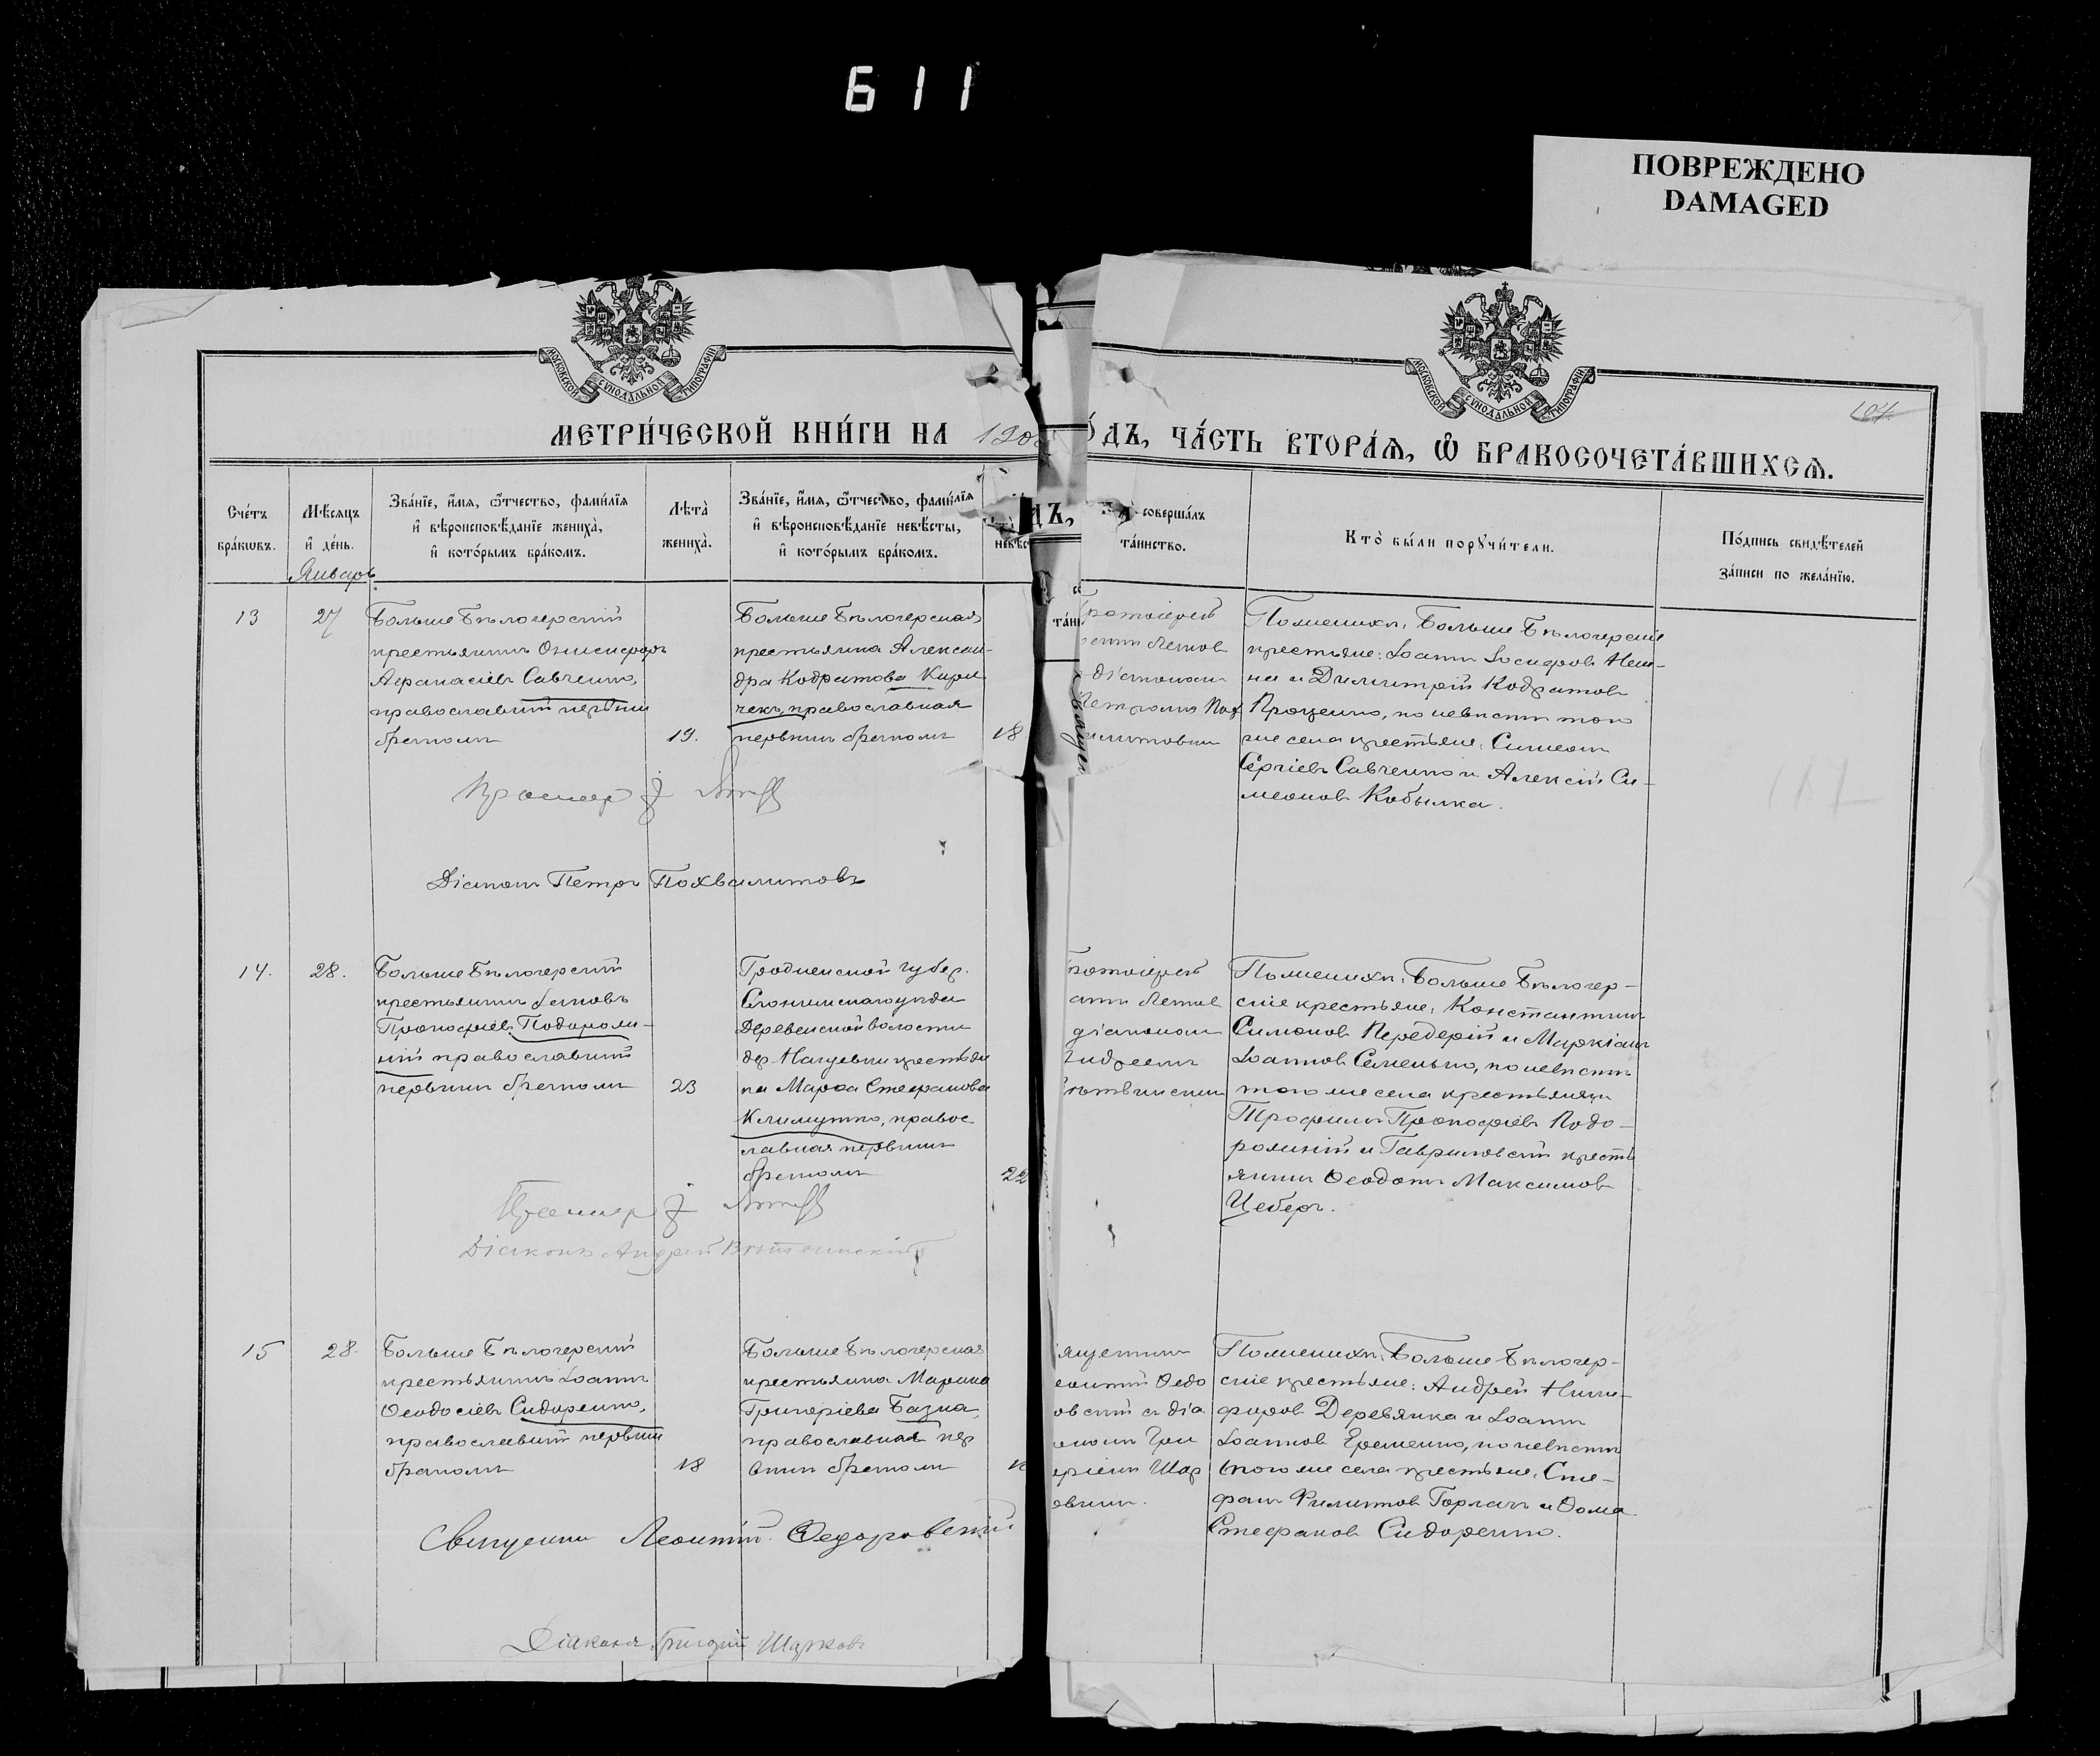 611
ПОВРЕЖДЕНО
DAMAGED
МОСКОВСКОЙ СѴНОДАЛЬНОЙ ТИПОГРАФІИ
МОСКОВСКОЙ СѴНОДАЛЬНОЙ ТИПОГРАФІИ
104
МЕТРИ́ЧЕСКОЙ КНИ́ГИ НА 190
О́ДЪ, ЧА́СТЬ ВТОРА́Ѧ, Ѽ БРАКОСОЧЕТА́ВШИХСѦ.
Сче́тъ
бра́кѡвъ.
Мѣ́сяцъ
и҆ де́нь.
Январь
Зва́нїе, и҆́мя, ѻ҆́тчество, фамѝлїя
и҆ вѣроисповѣ́данїе женихà,
и҆ кото́рымъ бра́комъ.
Лѣтà
женихà.
Зва́нїе, и҆́мя, ѻ҆́тчество, фамѝлїя
и҆ вѣроисповѣ́данїе невѣ́сты,
и҆ кото́рымъ бра́комъ.
невѣс
ДЪ,
соверша́лъ
та́инство.
Кто̀ бы́ли порꙋчи́тели.
По́дпись свидѣ́телей
за́писи по жела́нїю.
13
27
Больше Бѣлогерскій
крестьянинъ Онисифоръ
Афанасіевъ Савченко,
православный первым
бракомъ
19.
Больше Бѣлогерская
крестьянка Алексан-
дра Кодратова Кири
чекъ, православная
первымъ бракомъ
18
Протоіерей
діакономъ
Петромъ Пох
валитовым
Поженихѣ: Больше Бѣлогерскіе
крестьяне: Іоаннъ Іосифовъ
на и Димитрій Кодратовъ
Проценко, по невѣстѣ того
же села крестьяне: Симеонъ
Сергіевъ Савченко и Алексій Си-
меоновъ Кобылка.
Діаконъ Петръ Похвалитовъ
14.
28.
Больше Бѣлогерскій
крестьянинъ Іаковъ
Прокофіевъ Подорож-
ній православный
первымъ бракомъ
23
Гродненской губер.
Слонимского уѣзда
Деревенской волости
дер. крестьян
ка Марѳа Стефанова
Климутко, правос
лавная первымъ
бракомъ
22
Протоіерей
діакономъ
Андреемъ
Поженихѣ: Больше Бѣлогер-
скіе крестьяне: Константинъ
Симоновъ Передерій и Маркіанъ
Іоанновъ Семенько, по невѣстѣ
того же села крестьянинъ
Трофимъ Прокофіевъ Подо-
рожній и Гавриловскій кресть
янинъ Ѳеодотъ Максимовъ
Цеберъ.
Діаконъ Андрей
15
28.
Больше Бѣлогерскій
крестьянинъ Іоаннъ
Ѳеодосіевъ Сидоренко,
православный первым
бракомъ
18
Больше Бѣлогерская
крестьянка Марина
Григоріева Базна,
православная пер
вымъ бракомъ
ященник
еонтій Ѳедо
овскій съ діа
кономъ Гри
оріемъ Шар
овымъ.
Поженихѣ: Больше Бѣлогер-
скіе крестьяне: Андрей Ники-
форовъ Деревянка и Іоаннъ
Іоанновъ Еременко, по невѣстѣ
того же села крестьяне: Сте-
фанъ Филиповъ Горлачъ и Ѳома
Стефановъ Сидоренко.
Священникъ Леонтій Ѳедоровскій
Діаконъ Григорій Шарковъ